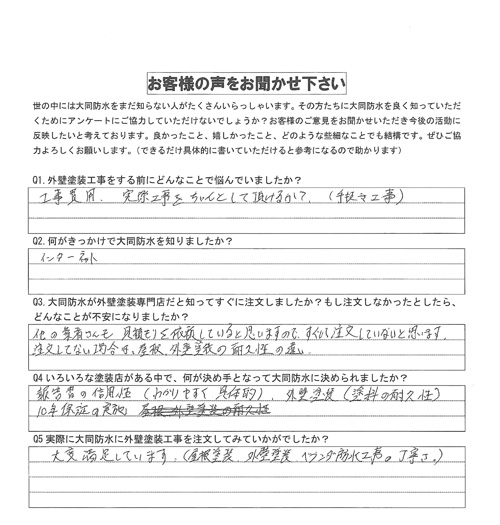 お客様の声をお聞かせ下さい
世の中には大同防水をまだ知らない人がたくさんいらっしゃいます。その方たちに大同防水を良く知っていただ
くためにアンケートにご協力していただけないでしょうか？お客様のご意見をお聞かせいただき今後の活動に
反映したいと考えております。良かったこと、嬉しかったこと、どのような些細なことでも結構です。ぜひご協
力よろしくお願いします。（できるだけ具体的に書いていただけると参考になるので助かります）
Q1.外壁塗装工事をする前にどんなことで悩んでいましたか？
工事費用、実際工事をちゃんとして頂けるか？、（手抜き工事）
Q2.何がきっかけで大同防水を知りましたか？
インターネット
Q3.大同防水が外壁塗装専門店だと知ってすぐに注文しましたか？もし注文しなかったとしたら、
どんなことが不安になりましたか？
他の業者さんも見積もりを依頼していると思いますので、すぐに注文していないと思います。
注文してない場合は、屋根、外壁塗装の耐久性の違い。
Q4いろいろな塗装店がある中で、何が決め手となって大同防水に決められましたか？
報告書の信用性（わかりやすく具体的）、外壁塗装（塗料の耐久性）
10年保証の実施 屋根、外壁塗装の耐久性
Q5実際に大同防水に外壁塗装工事を注文してみていかがでしたか？
大変満足しています。（屋根塗装、外壁塗装、ベランダ防水工事の丁寧さ。）